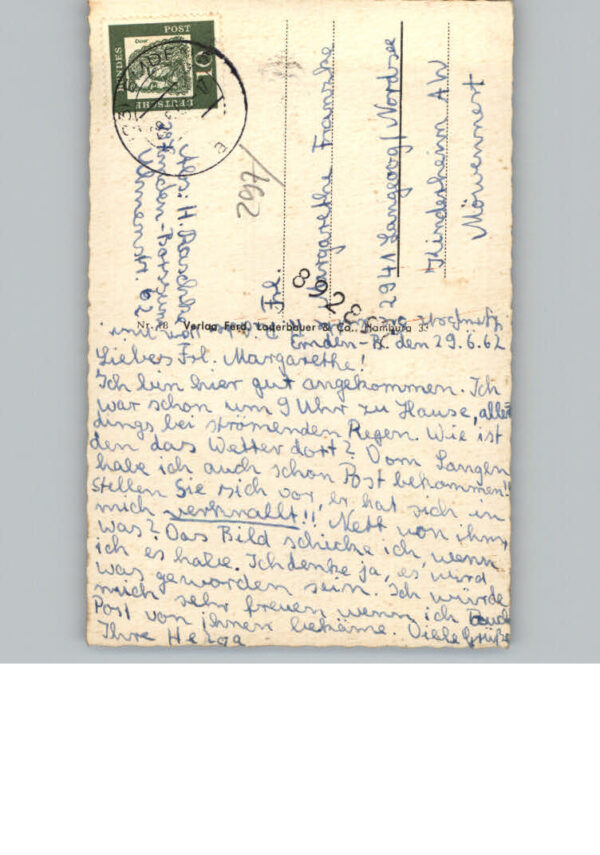 DEUTSCHE
BUNDES
POST
10
Dürer
Abs.: H. Raschke
Emden-Borssum
Ulmenstr. 62
762
Frl.
Margarethe Franzke
2941 Langeoog/Nordsee
Kinderheim AW
Möwennest
82283
Nr. 8 Verlag Ferd. Lagerbauer & Co., Hamburg 33
Emden-B. den 29.6.62
Liebes Frl. Margarethe!
Ich bin hier gut angekommen. Ich
war schon um 9 Uhr zu Hause, aller-
dings bei strömenden Regen. Wie ist
denn das Wetter dort? Vom Langen
habe ich auch schon Post bekommen!!
Stellen Sie sich vor, er hat sich in
mich verknallt!! Nett von ihm,
was? Das Bild schicke ich, wenn
ich es habe. Ich denke ja, es wird
was geworden sein. Ich würde
mich sehr freuen wenn ich
Post von ihnen bekäme. Viele Grüße
Ihre Helga